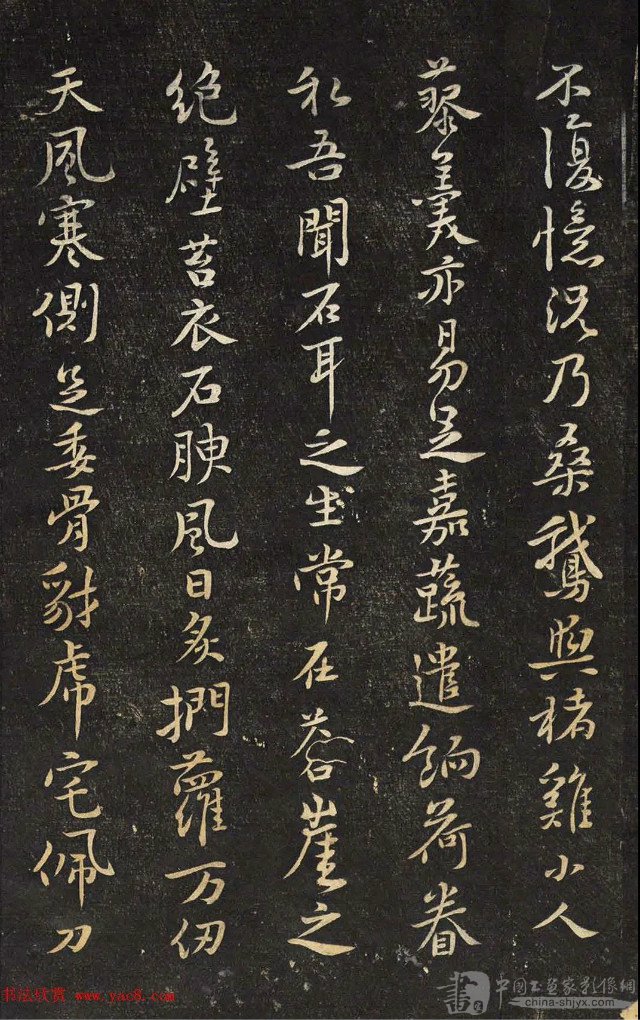 不復憶况乃桑鵝與楮雞小人
藜羹亦易足嘉蔬遣餉荷眷
私吾聞石耳之生常在蒼崖之
絶壁苔衣石腴風日炙捫蘿万仞
天風寒側足委骨豺虎宅佩刀
书法欣赏 www.yac8.com
書 中国书画家影像網
china-shjyx.com